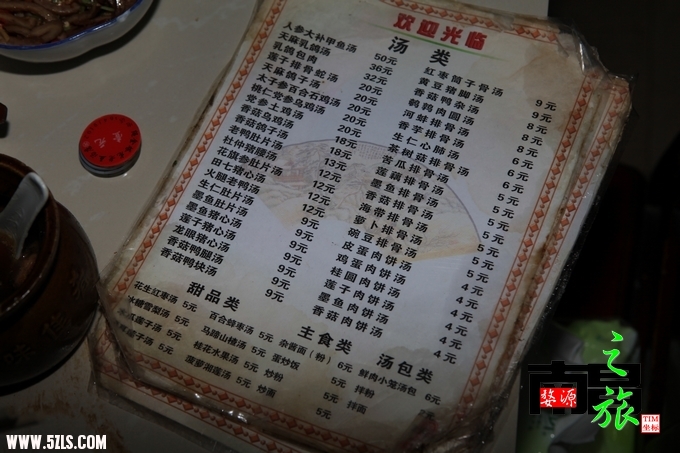 欢迎光临
汤 类
人参大补甲鱼汤 50元
天麻乳鸽汤 36元
乳鸽包肉 32元
莲子排骨蛇汤 20元
天麻鸽子汤 20元
太子参百合石鸡汤 20元
桃仁党参乌鸡汤 20元
党参土鸡汤 20元
香菇乌鸡汤 18元
香菇鸽子汤 18元
老鸭肚片汤 13元
杜仲猪腰汤 12元
花旗参肚片汤 12元
田七猪心汤 12元
火腿老鸭汤
生仁肚片汤 9元
墨鱼肚片汤 9元
墨鱼猪心汤 9元
莲子猪心汤 9元
龙眼猪心汤
香菇鸭腿汤
香菇鸭块汤
红枣筒子骨汤 9元
黄豆猪脚汤 9元
香菇鸭杂汤 8元
鹌鹑肉圆汤 8元
河蚌排骨汤 6元
香芋排骨汤 6元
生仁心肺汤 6元
茶树菇排骨汤 5元
苦瓜排骨汤 5元
莲藕排骨汤 5元
墨鱼排骨汤 5元
香菇排骨汤 5元
海带排骨汤 5元
萝卜排骨汤 4元
豌豆肉饼汤 4元
皮蛋肉饼汤 4元
鸡蛋肉饼汤 4元
桂圆肉饼汤 4元
莲子肉饼汤 4元
墨鱼肉饼汤
香菇肉饼汤
甜品类
花生红枣汤 5元
冰糖雪梨汤 5元
莲子汤 5元
子汤 5元
百合蚌枣汤 5元
马蹄山楂汤 5元
桂花水果汤 5元
菠萝湘莲汤 5元
主食类
杂酱面（粉） 6元
蛋炒饭 5元
炒粉 5元
炒面 5元
拌粉 5元
拌面 5元
汤包类
鲜肉小笼汤包 6元
南昌
婺源
之旅
TIM
坐标
WWW.5ZLS.COM